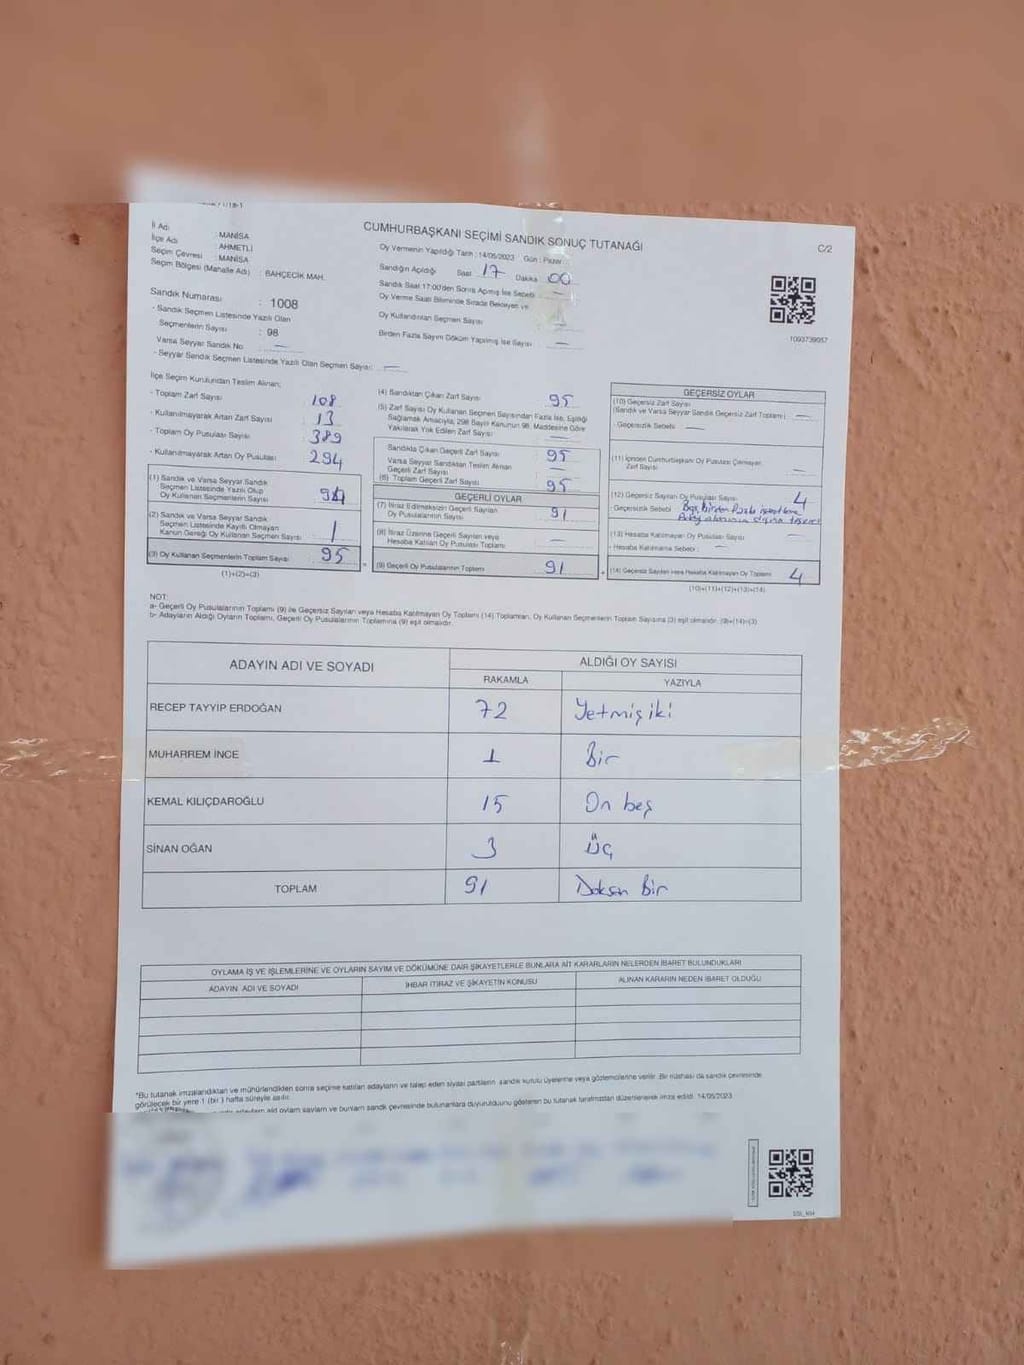 CUMHURBAŞKANI SEÇİMİ SANDIK SONUÇ TUTANAĞI
C/2
İl Adı : MANİSA
İlçe Adı : AHMETLİ
Seçim Çevresi : MANİSA
Seçim Bölgesi (Mahalle Adı) : BAHÇECİK MAH.
Oy Vermenin Yapıldığı Tarih : 14/05/2023 Gün : Pazar
Sandığın Açıldığı Saat 17 Dakika 00
Sandık Saat 17:00'den Sonra Açılmış İse Sebebi
Oy Verme Saati Bitiminde Sırada Bekleyen ve
Oy Kullandırılan Seçmen Sayısı
Birden Fazla Sayım Döküm Yapılmış İse Sayısı —
1093739057
Sandık Numarası : 1008
- Sandık Seçmen Listesinde Yazılı Olan
Seçmenlerin Sayısı : 98
Varsa Seyyar Sandık No —
- Seyyar Sandık Seçmen Listesinde Yazılı Olan Seçmen Sayısı: —
İlçe Seçim Kurulundan Teslim Alınan;
- Toplam Zarf Sayısı 108
- Kullanılmayarak Artan Zarf Sayısı 13
- Toplam Oy Pusulası Sayısı 389
- Kullanılmayarak Artan Oy Pusulası 294
(1) Sandık ve Varsa Seyyar Sandık
Seçmen Listesinde Yazılı Olup
Oy Kullanan Seçmenlerin Sayısı 94
(2) Sandık ve Varsa Seyyar Sandık
Seçmen Listesinde Kayıtlı Olmayan
Kanun Gereği Oy Kullanan Seçmen Sayısı: 1
(3) Oy Kullanan Seçmenlerin Toplam Sayısı 95
(1)+(2)=(3)
(4) Sandıktan Çıkan Zarf Sayısı 95
(5) Zarf Sayısı Oy Kullanan Seçmen Sayısından Fazla İse, Eşitliği
Sağlamak Amacıyla, 298 Sayılı Kanunun 98. Maddesine Göre
Yakılarak Yok Edilen Zarf Sayısı —
Sandıkta Çıkan Geçerli Zarf Sayısı 95
Varsa Seyyar Sandıktan Teslim Alınan
Geçerli Zarf Sayısı —
(6) Toplam Geçerli Zarf Sayısı 95
GEÇERLİ OYLAR
(7) İtiraz Edilmeksizin Geçerli Sayılan
Oy Pusulalarının Sayısı 91
(8) İtiraz Üzerine Geçerli Sayılan veya
Hesaba Katılan Oy Pusulası Toplamı —
(9) Geçerli Oy Pusulalarının Toplamı 91
GEÇERSİZ OYLAR
(10) Geçersiz Zarf Sayısı
(Sandık ve Varsa Seyyar Sandık Geçersiz Zarf Toplamı) —
- Geçersizlik Sebebi : —
(11) İçinden Cumhurbaşkanı Oy Pusulası Çıkmayan
Zarf Sayısı —
(12) Geçersiz Sayılan Oy Pusulası Sayısı 4
- Geçersizlik Sebebi : birden fazla
(13) Hesaba Katılmayan Oy Pusulası Sayısı —
- Hesaba Katılmama Sebebi : —
(14) Geçersiz Sayılan veya Hesaba Katılmayan Oy Toplamı 4
(10)+(11)+(12)+(13)=(14)
NOT:
a- Geçerli Oy Pusulalarının Toplamı (9) ile Geçersiz Sayılan veya Hesaba Katılmayan Oy Toplamı (14) Toplamları, Oy Kullanan Seçmenlerin Toplam Sayısına (3) eşit olmalıdır. (9)+(14)=(3)
b- Adayların Aldığı Oyların Toplamı, Geçerli Oy Pusulalarının Toplamına (9) eşit olmalıdır.
ADAYIN ADI VE SOYADI ALDIĞI OY SAYISI
RAKAMLA YAZIYLA
RECEP TAYYİP ERDOĞAN 72 Yetmişiki
MUHARREM İNCE 1 Bir
KEMAL KILIÇDAROĞLU 15 On beş
SİNAN OĞAN 3 Üç
TOPLAM 91 Doksan Bir
OYLAMA İŞ VE İŞLEMLERİNE VE OYLARIN SAYIM VE DÖKÜMÜNE DAİR ŞİKAYETLERLE BUNLARA AİT KARARLARIN NELERDEN İBARET BULUNDUKLARI
ADAYIN ADI VE SOYADI İHBAR İTİRAZ VE ŞİKAYETİN KONUSU ALINAN KARARIN NEDEN İBARET OLDUĞU
*Bu tutanak imzalandıktan ve mühürlendikten sonra seçime katılan adayların ve talep eden siyasi partilerin sandık kurulu üyelerine veya gözlemcilerine verilir. Bir nüshası da sandık çevresinde
görülecek bir yere 1 (bir) hafta süreyle asılır.